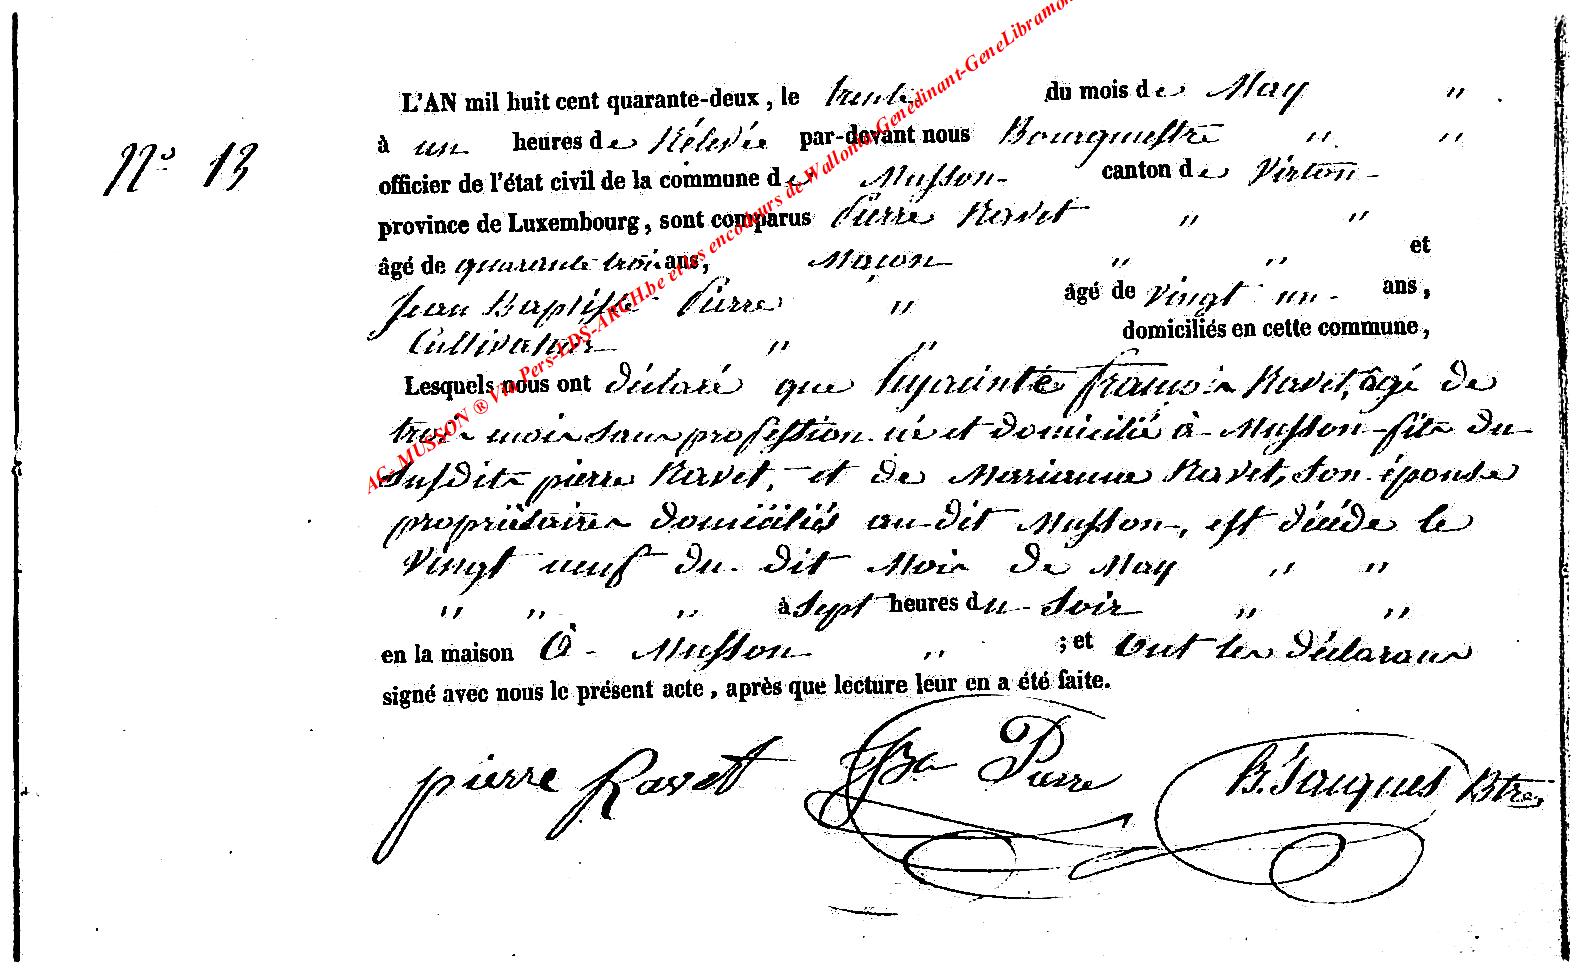 N° 13
L'AN mil huit cent quarante-deux, le trente du mois de May "
à un heures de Rélevée par-devant nous Bourgmestre " "
officier de l'état civil de la commune de Musson - canton de Virton -
province de Luxembourg, sont comparus Pierre Ravet " "
âgé de quarante trois ans, Maçon " " et
Jean Baptiste Pierre " âgé de vingt un - ans,
Cultivateur " " domiciliés en cette commune,
Lesquels nous ont déclaré que hyacinte françois Ravet, âgé de
trois mois sans profession né et domicilié à Musson fils du
Susdits pierre Ravet, et de Marianne Ravet, son épouse
propriétaires domiciliés audit Musson, est décédé le
vingt neuf du dit Mois de May " "
" " " à sept heures du soir " "
en la maison à - Musson " ; et ont les déclarans
signé avec nous le présent acte, après que lecture leur en a été faite.
pierre Ravet JBa Pierre B. Jacques Btre
AC-MUSSON ® Via Pers-LDS-ARCH.be et les encodeurs de Wallonia-Genedinant-GeneLibramon